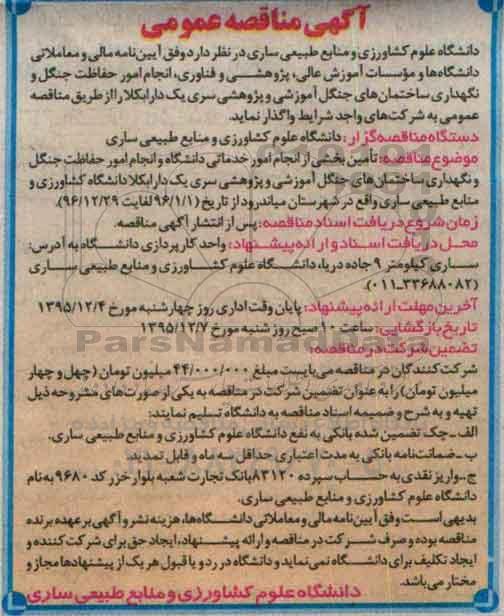 آگهی مناقصه عمومی
دانشگاه علوم کشاورزی و منابع طبیعی ساری در نظر دارد وفق آیین‌نامه مالی و معاملاتی
دانشگاه‌ها و مؤسسات آموزش عالی، پژوهشی و فناوری، انجام امور حفاظت جنگل و
نگهداری ساختمان‌های جنگل آموزشی و پژوهشی سری یک دارابکلا را از طریق مناقصه
عمومی به شرکت‌های واجد شرایط واگذار نماید.
دستگاه مناقصه‌گزار: دانشگاه علوم کشاورزی و منابع طبیعی ساری
موضوع مناقصه: تأمین بخشی از انجام امور خدماتی دانشگاه و انجام امور حفاظت جنگل
و نگهداری ساختمان‌های جنگل آموزشی و پژوهشی سری یک دارابکلا دانشگاه کشاورزی و
منابع طبیعی ساری واقع در شهرستان میاندرود از تاریخ (۹۶/۱/۱ لغایت ۹۶/۱۲/۲۹).
زمان شروع دریافت اسناد مناقصه: پس از انتشار آگهی مناقصه.
محل دریافت اسناد و ارائه پیشنهاد: واحد کارپردازی دانشگاه به آدرس:
ساری کیلومتر ۹ جاده دریا، دانشگاه علوم کشاورزی و منابع طبیعی ساری
(۰۱۱-۳۳۶۸۸۰۸۲)
آخرین مهلت ارائه پیشنهاد: پایان وقت اداری روز چهارشنبه مورخ ۱۳۹۵/۱۲/۴
تاریخ بازگشایی: ساعت ۱۰ صبح روز شنبه مورخ ۱۳۹۵/۱۲/۷
ParsNamadData
تضمین شرکت در مناقصه:
شرکت‌کنندگان در مناقصه می‌بایست مبلغ ۴۴/۰۰۰/۰۰۰ میلیون تومان (چهل و چهار
میلیون تومان) را به عنوان تضمین شرکت در مناقصه به یکی از صورت‌های مشروحه ذیل
تهیه و به شرح و ضمیمه اسناد مناقصه به دانشگاه تسلیم نمایند:
الف-چک تضمین شده بانکی به نفع دانشگاه علوم کشاورزی و منابع طبیعی ساری.
ب-ضمانت‌نامه بانکی به مدت اعتباری حداقل سه ماه و قابل تمدید.
ج-واریز نقدی به حساب سپرده ۸۳۱۲۰ بانک تجارت شعبه بلوار خزر کد ۹۶۸۰ به نام
دانشگاه علوم کشاورزی و منابع طبیعی ساری.
بدیهی است وفق آیین‌نامه مالی و معاملاتی دانشگاه‌ها، هزینه نشر و آگهی بر عهده برنده
مناقصه بوده و صرف شرکت در مناقصه و ارائه پیشنهاد، ایجاد حق برای شرکت‌کننده و
ایجاد تکلیف برای دانشگاه نمی‌نماید و دانشگاه در رد و یا قبول هر یک از پیشنهادها مجاز و
مختار می‌باشد.
دانشگاه علوم کشاورزی و منابع طبیعی ساری